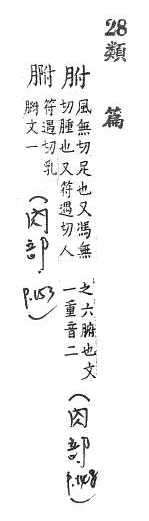 28 類篇
胕
風無切足也又馮無
切腫也又符遇切人
之六腑也文
一重音二
(肉部 p.148)
符遇切乳
文一
(肉部 p.153)